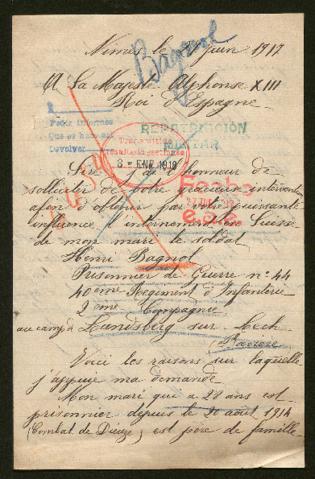 Nimes le Juin 1917
Bagnol
A Sa Majesté Alphonse XIII
Roi d'Espagne
REPATRIACIÓN
MILITAR
Pedir informes
Que se han est
Devolver
Transmitida
8 - ENE 1918
Fecha
Sire j'ai l'honneur de
solliciter de votre gracieuse intervention
afin d'obtenir par votre puissante
influence, l'internement en Suisse
de mon mari le soldat
Henri Bagnol
Prisonnier de Guerre n° 44
40eme Régiment d'Infanterie
2eme Compagnie
au camp de Landsberg sur Lech
Voici les raisons sur laquelle
j'appuie ma demande
Mon mari qui a 28 ans est
prisonnier depuis le 20 août 1914
(Combat de Dieuze) est père de famille